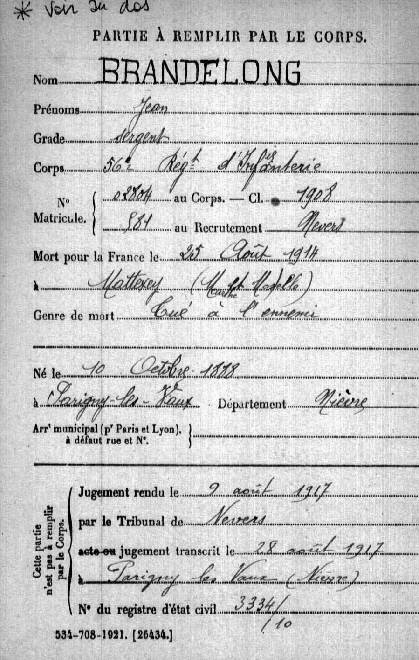 * Voir au dos
PARTIE À REMPLIR PAR LE CORPS.
Nom BRANDELONG
Prénoms Jean
Grade Sergent
Corps 56e Régt d'Infanterie
N° Matricule. { 02804 au Corps. — Cl. 1908
581 au Recrutement Nevers
Mort pour la France le 25 Août 1914
à Mattexey (Meurthe et Moselle)
Genre de mort Tué à l'ennemi
Né le 10 Octobre 1888
à Parigny-les-Vaux Département Nièvre
Arrt municipal (pr Paris et Lyon), à défaut rue et N°. {
Cette partie n'est pas à remplir par le Corps. {
Jugement rendu le 9 août 1917
par le Tribunal de Nevers
acte ou jugement transcrit le 28 août 1917
à Parigny les Vaux (Nièvre)
N° du registre d'état civil 3334/
/10
534-708-1921. [26434.]